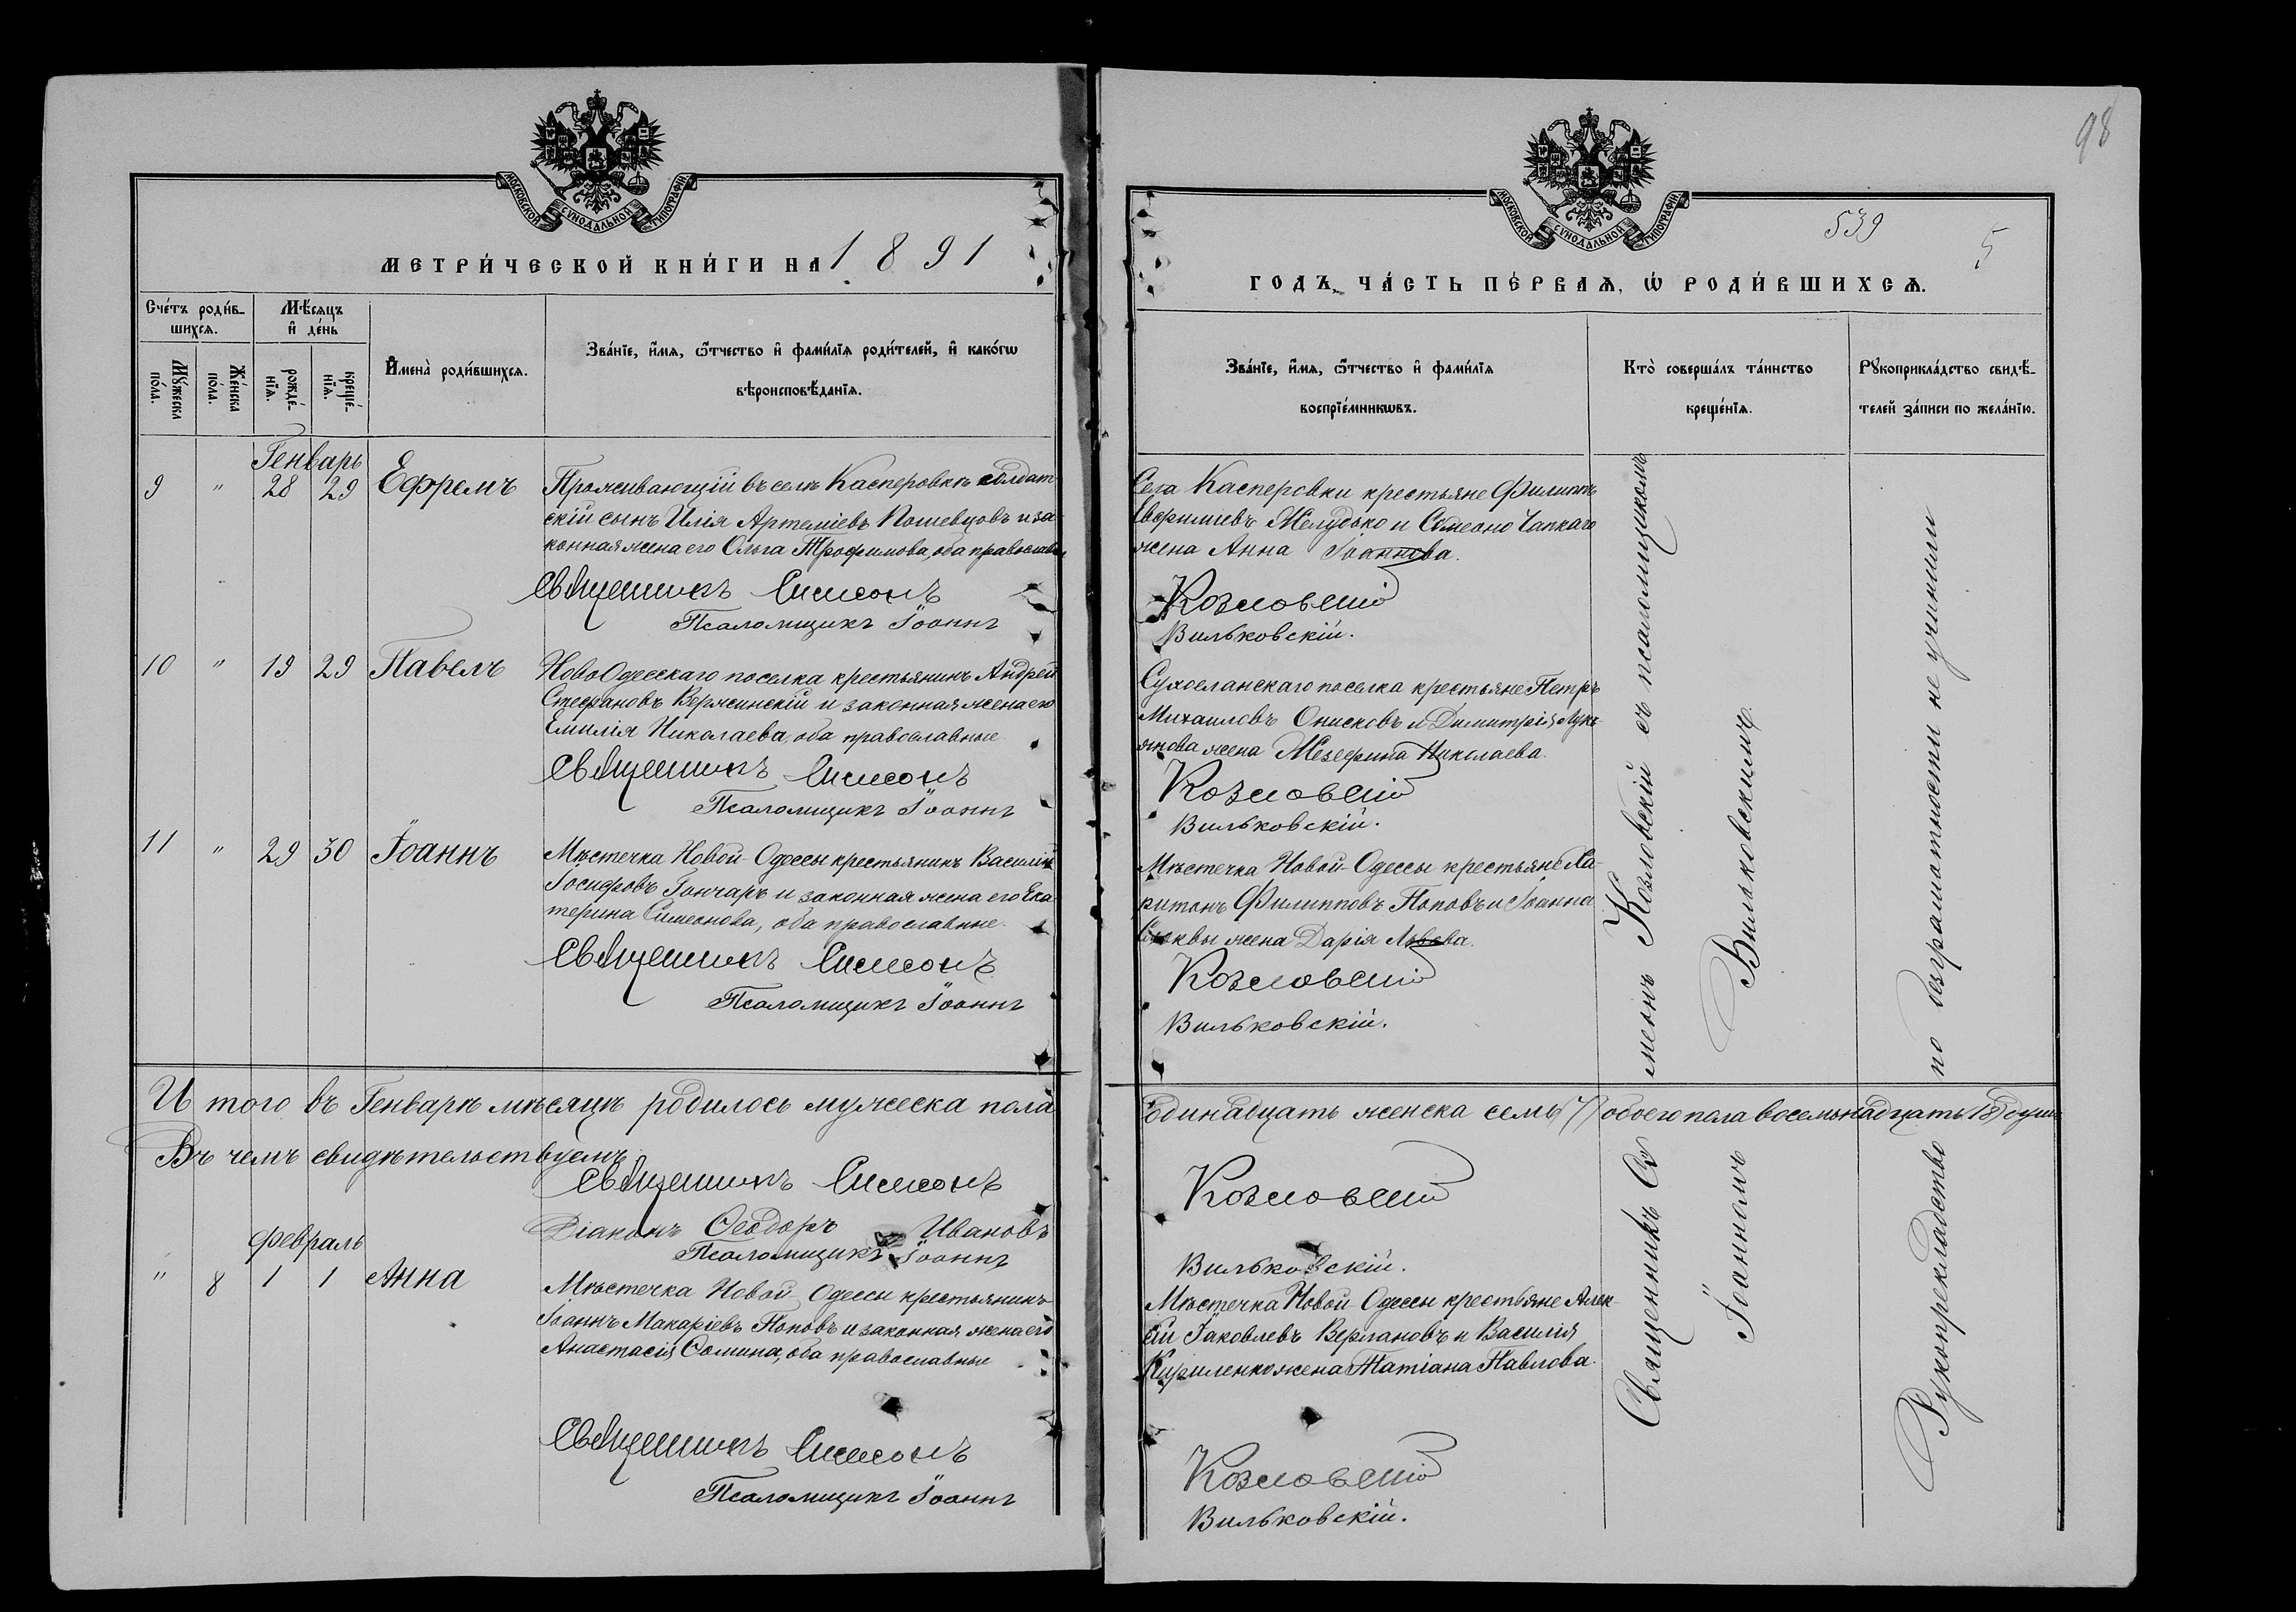 98
МОСКОВСКОЙ СУНОДАЛЬНОЙ ТИПОГРАФІИ
МЕТРИ́ЧЕСКОЙ КНИ́ГИ НА 1891
Сче́тъ роди́в-
шихся.
Мѣ́сяцъ
и҆ де́нь
Мꙋ́жеска
по́ла.
Же́нска
по́ла.
рожде́-
нїя.
креще́-
нїя.
И҆мена̀ роди́вшихся.
Зва́нїе, и҆́мя, ѻ҆́тчество и҆ фами́лїя роди́телей, и҆ како́гѡ
вѣроисповѣ́данїя.
Генварь
9 " 28 29 Ефремъ
Проживающій въ селѣ Касперовкѣ солдат
скій сынъ Илія Артеміевъ Кошевцовъ и за
конная жена его Ольга Трофимова, оба православн
Священникъ Симеонъ
Псаломщикъ Іоаннъ
10 " 19 29 Павелъ
НовоОдесскаго поселка крестьянинъ Андрей
Стефановъ Вержинскій и законная жена его
Емилія Николаева, оба православные
Священникъ Симеонъ
Псаломщикъ Іоаннъ
11 " 29 30 Іоаннъ
Мѣстечка Новой-Одессы крестьянинъ Василій
Іосифовъ Гончаръ и законная жена его Ека
терина Симеонова, оба православные.
Священникъ Симеонъ
Псаломщикъ Іоаннъ
И того въ Генварѣ мѣсяцѣ родилось мужеска пола
Въ чемъ свидѣтельствуемъ
Священникъ Симеонъ
Діаконъ Ѳеодоръ Ивановъ
Псаломщикъ Іоаннъ
Февраль
" 8 1 1 Анна
Мѣстечка Новой Одессы крестьянинъ
Іоаннъ Макаріевъ Поповъ и законная жена его
Анастасія Ѳомина, оба православные
Священникъ Симеонъ
Псаломщикъ Іоаннъ
МОСКОВСКОЙ СУНОДАЛЬНОЙ ТИПОГРАФІИ
539
5
ГОДЪ, ЧА́СТЬ ПЕ́РВАЯ, Ѡ҆ РОДИ́ВШИХСЯ.
Зва́нїе, и҆́мя, ѻ҆́тчество и҆ фами́лїя
воспрїе́мникѡвъ.
Кто̀ соверша́лъ та́инство
креще́нїя.
Рꙋкоприкла́дство свидѣ́-
телей за́писи по жела́нїю.
Села Касперовки крестьяне Филиппъ
Евфиміевъ и Симеона Чапкаго
жена Анна Іоаннова.
Козловскій
Вильковскій.
Сухоеланскаго поселка крестьяне Петръ
Михаиловъ Онисковъ и Димитрія Лукь
янова жена Николаева.
Козловскій
Вильковскій.
Мѣстечка Новой-Одессы крестьяне Ха-
ритонъ Филипповъ Поповъ и Іоанна
жена Дарія Львова.
Козловскій
Вильковскій.
одинадцать женска семь (7) обоего пола восемьнадцать 18) душъ
Козловскій
Вильковскій.
Мѣстечка Новой-Одессы крестьяне Алек-
сій Іаковлевъ Верлановъ и Василія
Кириленко жена Татіана Павлова.
Козловскій
Вильковскій.
Священникъ Симеонъ Козловскій съ псаломщикомъ
Іоанномъ Вильковскимъ.
Рукоприкладство по безграмотности не учинили